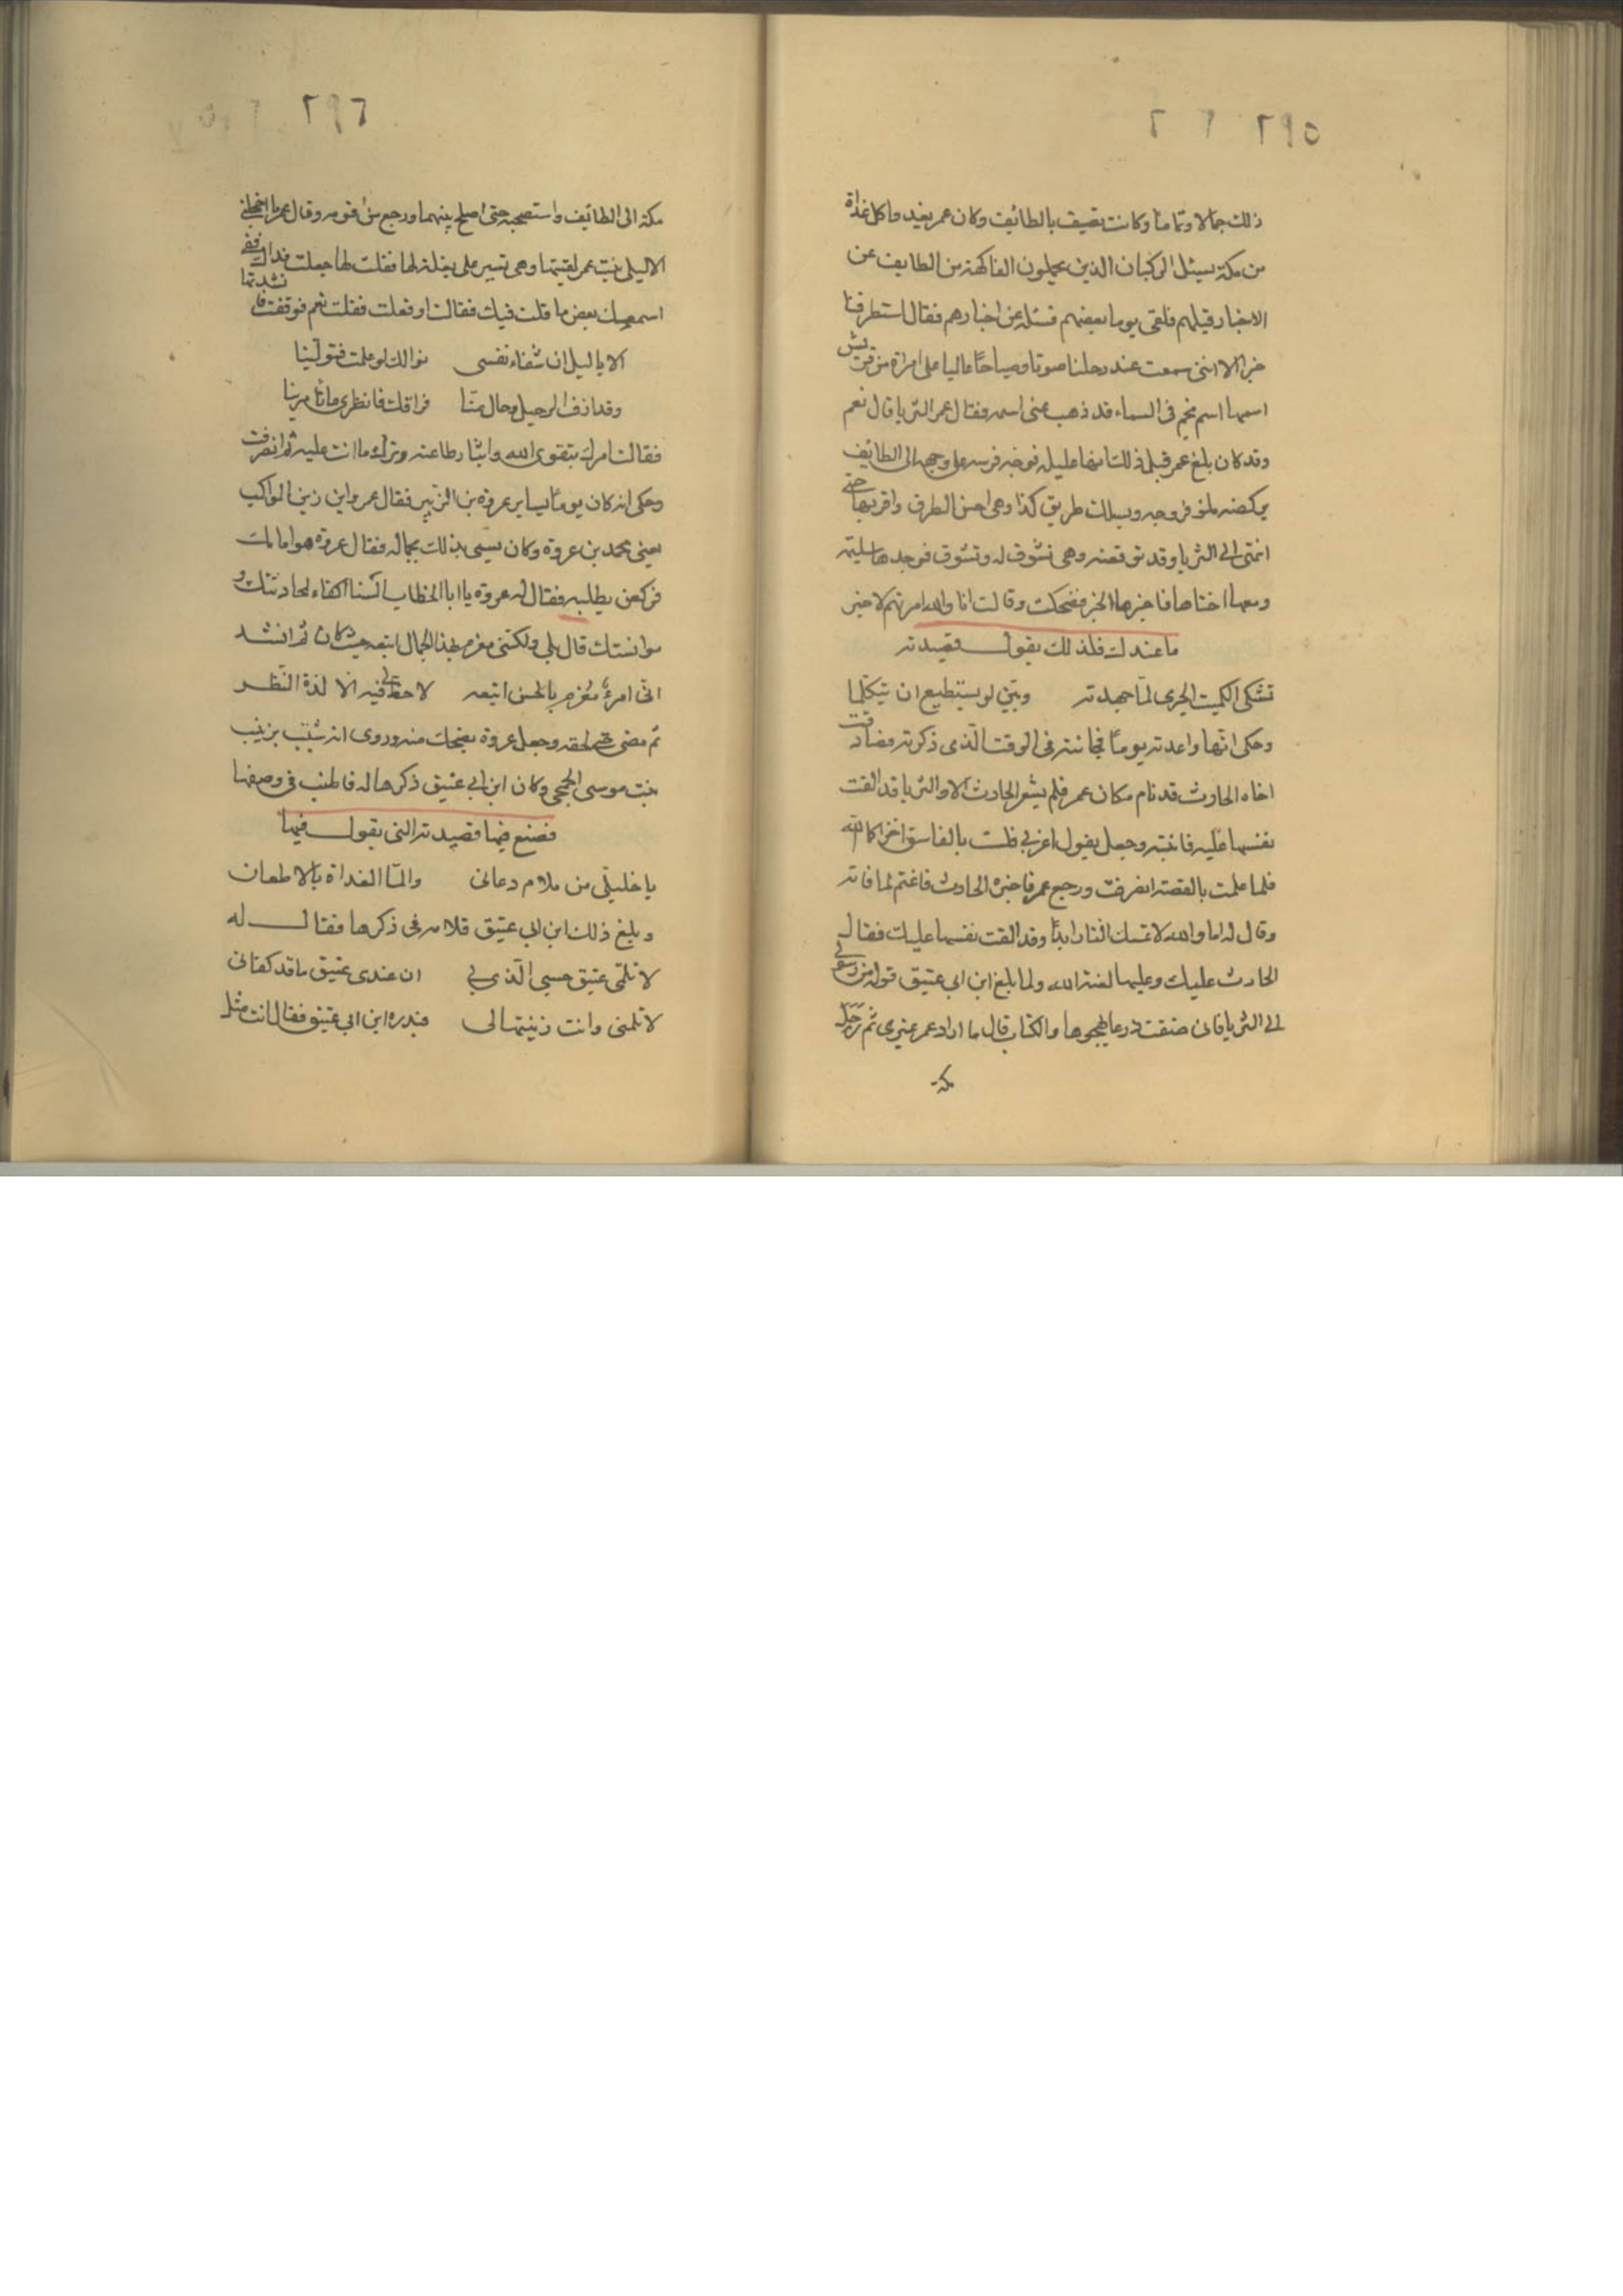 ٢٩٥
ذلك جمالا وتماما وكانت تصيف بالطائف وكان عمر يغدوا كل غداة
من مكة يسئل الركبان الذين يحملون الفاكهة من الطايف عن
الاخبار قبلهم فلقى يوما بعضهم فسئله عن اخبارهم فقال ما استطرفنا
خبرا الا اننى سمعت عند رحلنا صوتا وصياحًا عاليا على امراة من قريش
اسمها اسم نجم فى السماء قد ذهب عنى اسمه فقال عمر الثريا قال نعم
وقد كان بلغ عمر قبل ذلك انها عليله فوجه فرسه على وجهه الى الطائف
يركضه ملئ فروجه ويسلك طريق كذا وهى احسن الطرق واقربها حتى
انتهى الى الثريا وقد توقعته وهى تشوف له وتشوق فوجدها سليمة
ومعها اختاها فاخبرها الخبر فضحكت وقالت انا والله امرتهم لاخبر
ما عندك فلذلك يقول قصيدته
تشكى الكميت الجرى لما جهدته وبيّن لو يستطيع ان يتكلما
وحكى انها واعدته يومًا فجائته فى الوقت الذى ذكرته فصادفت
اخاه الحارث قد نام مكان عمر فلم يشعر الحارث الا والثريا قد القت
نفسها عليه فانتبه وجعل يقول اغربى فلست بالفاسق اخزاكما الله
فلما علمت بالقصة انصرفت ورجع عمر فاخبره الحارث فاغتم لما فاته
وقال له اما والله لا تمسك النار ابدًا وقد القت نفسها عليك فقال
الحارث عليك وعليها لعنة الله ولما بلغ ابن ابى عتيق قوله من رسولى
الى الثريا فانى ضقت ذرعا بهجرها والكتاب قال ما اراد عمر غيرى ثم رحل
مكة
٢٩٦
مكة الى الطائف واستصحبه حتى اصلح بينهما ورجع من فوره وقال عمر ما اخجلنى
الا ليلى بنت عمر لقيتها وهى تسير على بغلة لها فقلت لها جعلت فداك قفى
اسمعك بعض ما قلت فيك فقالت او فعلت فقلت نعم فوقفت فانشدتها
الا يا ليل ان شفاء نفسى نوالك لو علمت فنولينا
وقد ازف الرحيل وحال منّا فراقك فانظرى ما تامرينا
فقالت امرك بتقوى الله وايثار طاعته وترك ما انت عليه ثم انصرفت
وحكى انه كان يومًا يساير عروة بن الزبير فقال عمر واين زين المواكب
يعنى محمد بن عروة وكان يسمى بذلك بجماله فقال عروة هو امامك
فركض يطلبه فقال له عروة يا ابا الخطاب السنا اكفاء لمحادثتك و
موانستك قال بلى ولكننى مغرم بهذا الجمال اتبعه حيث كان ثم انشد
انى امرؤ مغرم بالحسن اتبعه لا حظ لى فيه الا لذة النظر
ثم مضى حتى لحقه وجعل عروة يضحك منه وروى انه شبب بزينب
بنت موسى الجمحى وكان ابن ابى عتيق ذكرها له فاطنب فى وصفها
فصنع فيها قصيدته التى يقول فيها
يا خليلى من ملام دعانى والمّا الغداة بالاظعان
وبلغ ذلك ابن ابى عتيق فلامه فى ذكرها فقال له
لا تلمنى عتيق حسبى الذى بى ان عندى عتيق ما قد كفانى
لا تلمنى وانت زينتها لى فبدره ابن ابى عتيق فقال انت مثل